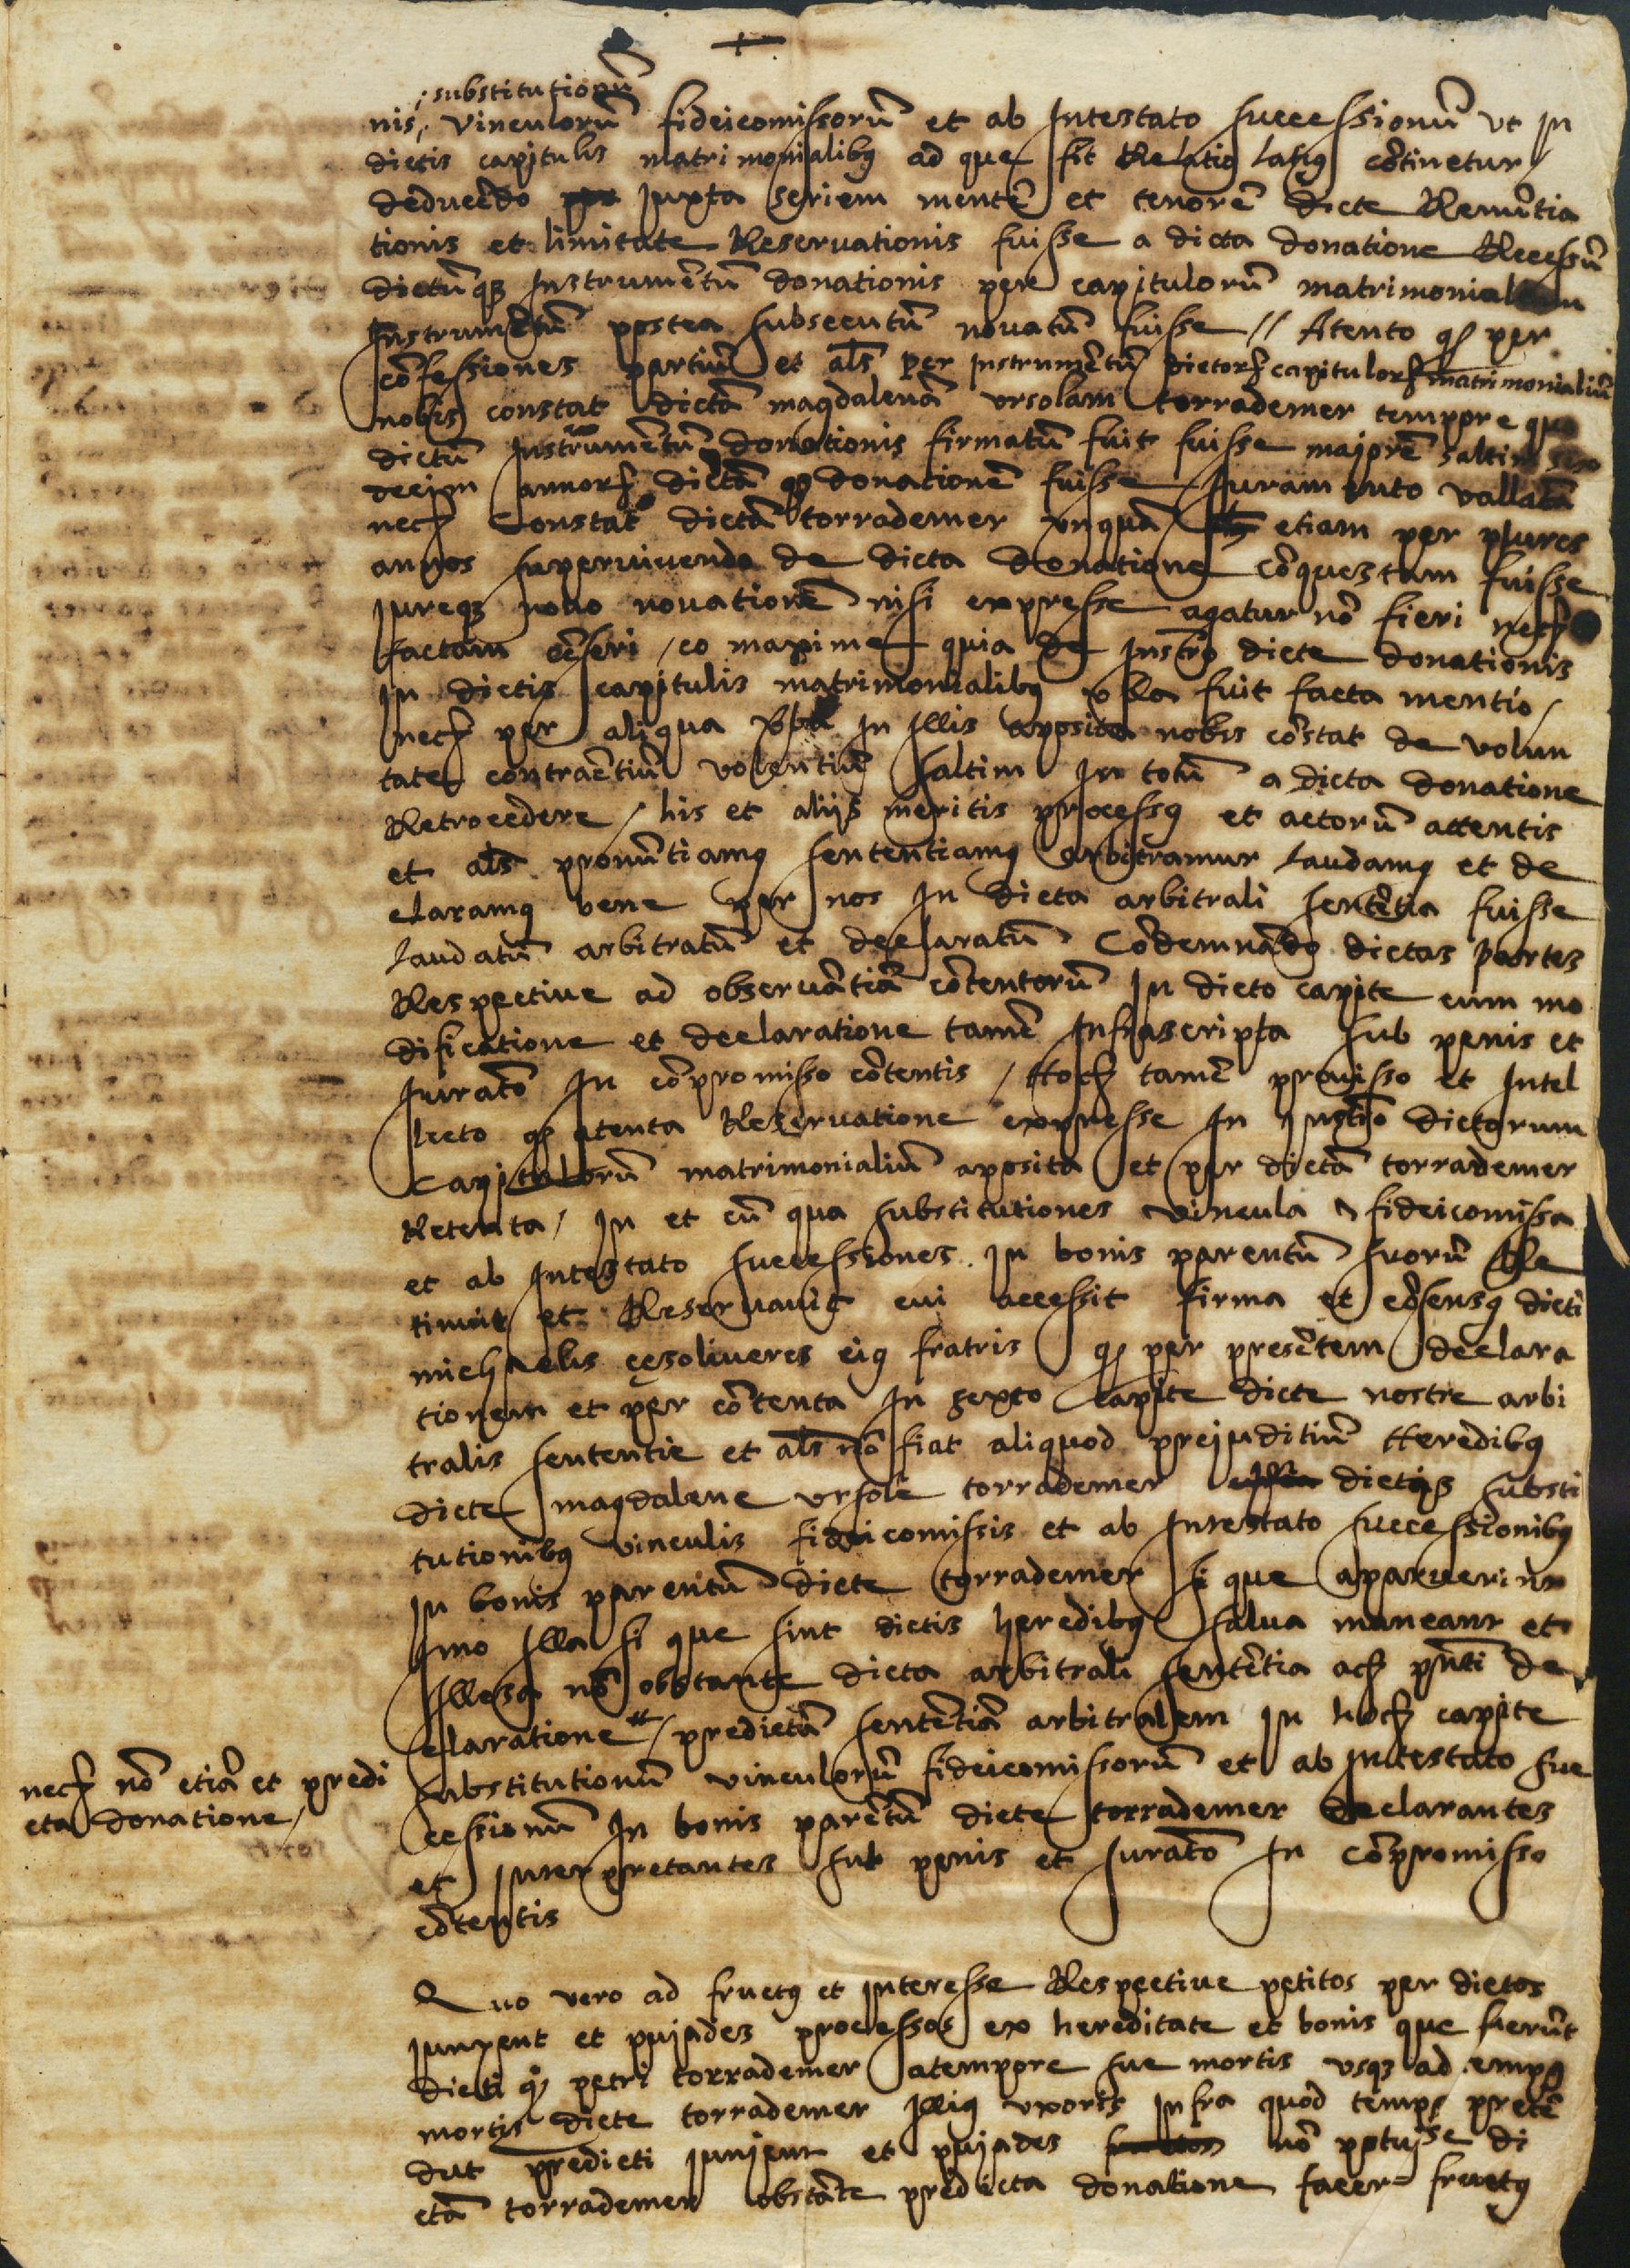 substitutionũ
nis, vinculorũ fideicomissorũ et ab Intestato successionũ ut In
dictis capitulis matrimonialibꝰ ad que fit Relatio latiꝰ cõtinetur
deducẽdo juxta seriem mentẽ et tenorẽ dicte Renũtia
tionis et limitate Reservationis fuisse a dicta donatione Recessũ
dictũqꝫ Instrumẽtũ donationis per capitulorũ matrimonialium
Instrumẽtũ postea subsecutũ novatũ fuisse // Atento ꝙ per
cõfessiones partiũ et als̃ per Instrumẽtũ dictorꝝ capitulorꝝ matrimonialiũ
nobis constat dictã magdalenã ursolam torrademer tempore quo
dictũ Instrumẽtũ donationis firmatũ fuit fuisse majorẽ saltim sex
decim annorꝝ dictã ꝙ donationẽ fuisse Juramento vallatã
necꝫ Constat dictã torrademer unquã etiam per plures
annos supervivendo de dicta donatione cõquestam fuisse
jureqꝫ novo novationẽ nisi expresse agatur nõ fieri necꝫ
factam cẽseri / eo maxime quia de Instrõ dicte donationis
In dictis capitulis matrimonialibꝰ ulla fuit facta mentio /
necꝫ per aliqua v̑ba In Illis aposita nobis cõstat de volun
tate contraẽtiũ volentiũ saltim In totũ a dicta donatione
Retrocedere / his et aliis meritis processꝰ et actorũ attentis
et als̃ pronũtiamꝰ sententiamꝰ arbitramur laudamꝰ et de
claramꝰ bene per nos In dicta arbitrali sentẽtia fuisse
laudatũ arbitratũ et declaratũ Cõdemnãdo dictas partes
Respective ad observãtiã cõtentorũ In dicto capite cum mo
dificatione et declaratione tamẽ Infrascripta sub penis et
Juratõ In cõpromisso cõtentis / Hocꝫ tamẽ proviso et Intel
lecto ꝙ atenta Reservatione expresse In Instrõ dictorum
Capitulorũ matrimonialiũ aposita et per dictã torrademer
Retenta / In et cũ qua substitutiones vincula ⁊ fideicomissa
et ab Intestato successiones In bonis parentũ suorũ Re
tinuit et Reservavit cui accessit firma et cõsensꝰ dicti
michaelis çesoliveres eiꝰ fratris ꝙ per presẽtem declara
tionem et per cõtenta In sexto capite dicte nostre arbi
tralis sententie et als̃ nõ fiat aliquod preiuditiũ Heredibꝰ
dicte magdalene ursole torrademer In dictis substi
tutionibꝰ vinculis fideicomissis et ab Intestato successionibꝰ
In bonis parentũ dicte torrademer si que aparuerint
Imo Illa si que sint dictis heredibꝰ salva maneant et
Illesa nõ obstante dicta arbitrali sentẽtia acꝫ pñti de
claratione / predictã sentẽtiã arbitralem In hocꝫ capite
necꝫ nõ etiã et predi
cta donatione /
substitutionũ vinculorũ fideicomissorũ et ab Intestato suc
cessionũ In bonis parẽtũ dicte torrademer declarantes
et Interpretantes sub penis et Juratõ In cõpromisso
cõtentis
Quo vero ad fructꝰ et Interesse Respective petitos per dictos
junyent et pujades processos ex hereditate et bonis que fuerũt
dicti qº petri torrademer a tempore sue mortis usqꝫ ad tempꝰ
mortis dicte torrademer Illiꝰ uxoris Infra quod tempꝰ pretẽ
dũt predicti junyent et pujades nõ potuisse di
ctã torrademer obstãte predicta donatione facer fructꝰ